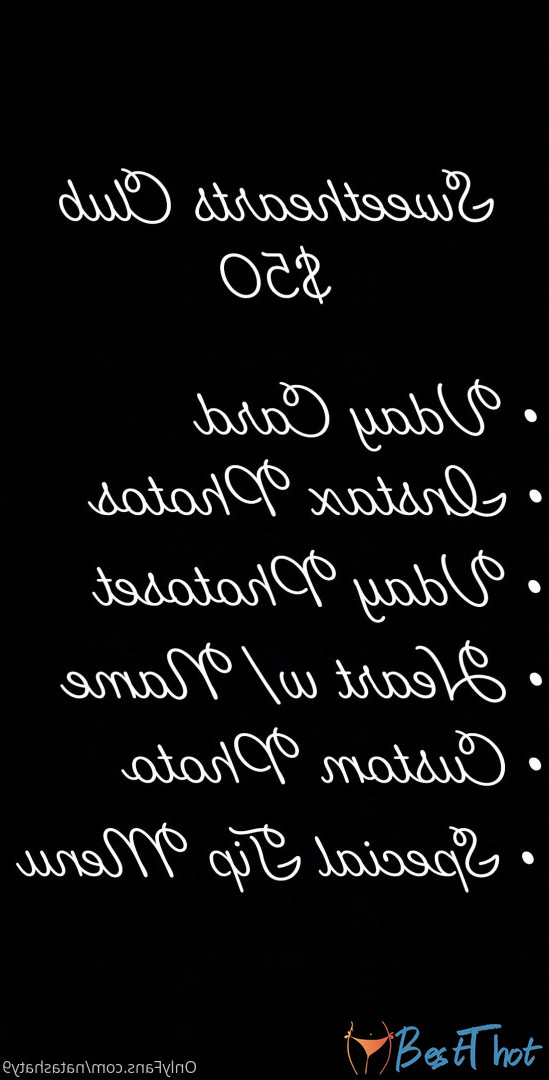 Sweethearts Club
$50
• Vday Card
• Instax Photos
• Vday Photoset
• Heart w/ Name
• Custom Photo
• Special Tip Menu
OnlyFans.com/natashaty9
BestThot